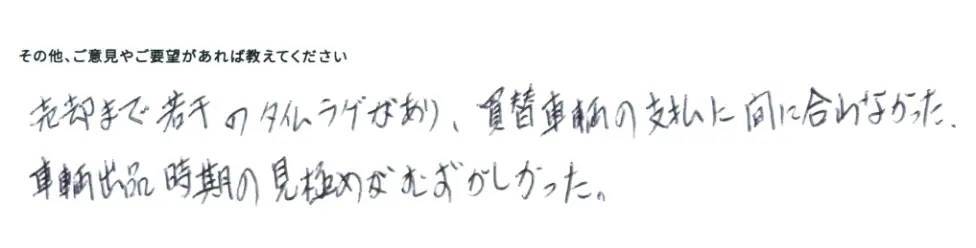 その他、ご意見やご要望があれば教えてください
売却まで若干のタイムラグがあり、買替車輌の支払に間に合わなかった.
車輌出品時期の見極めがむずかしかった。